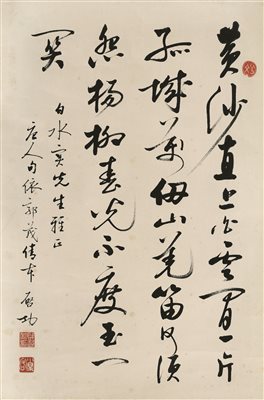 黄沙直上白云间一片
孤城万仞山羌笛何须
怨杨柳春光不度玉一
关
白水实先生雅正
唐人句依郭茂倩本 启功